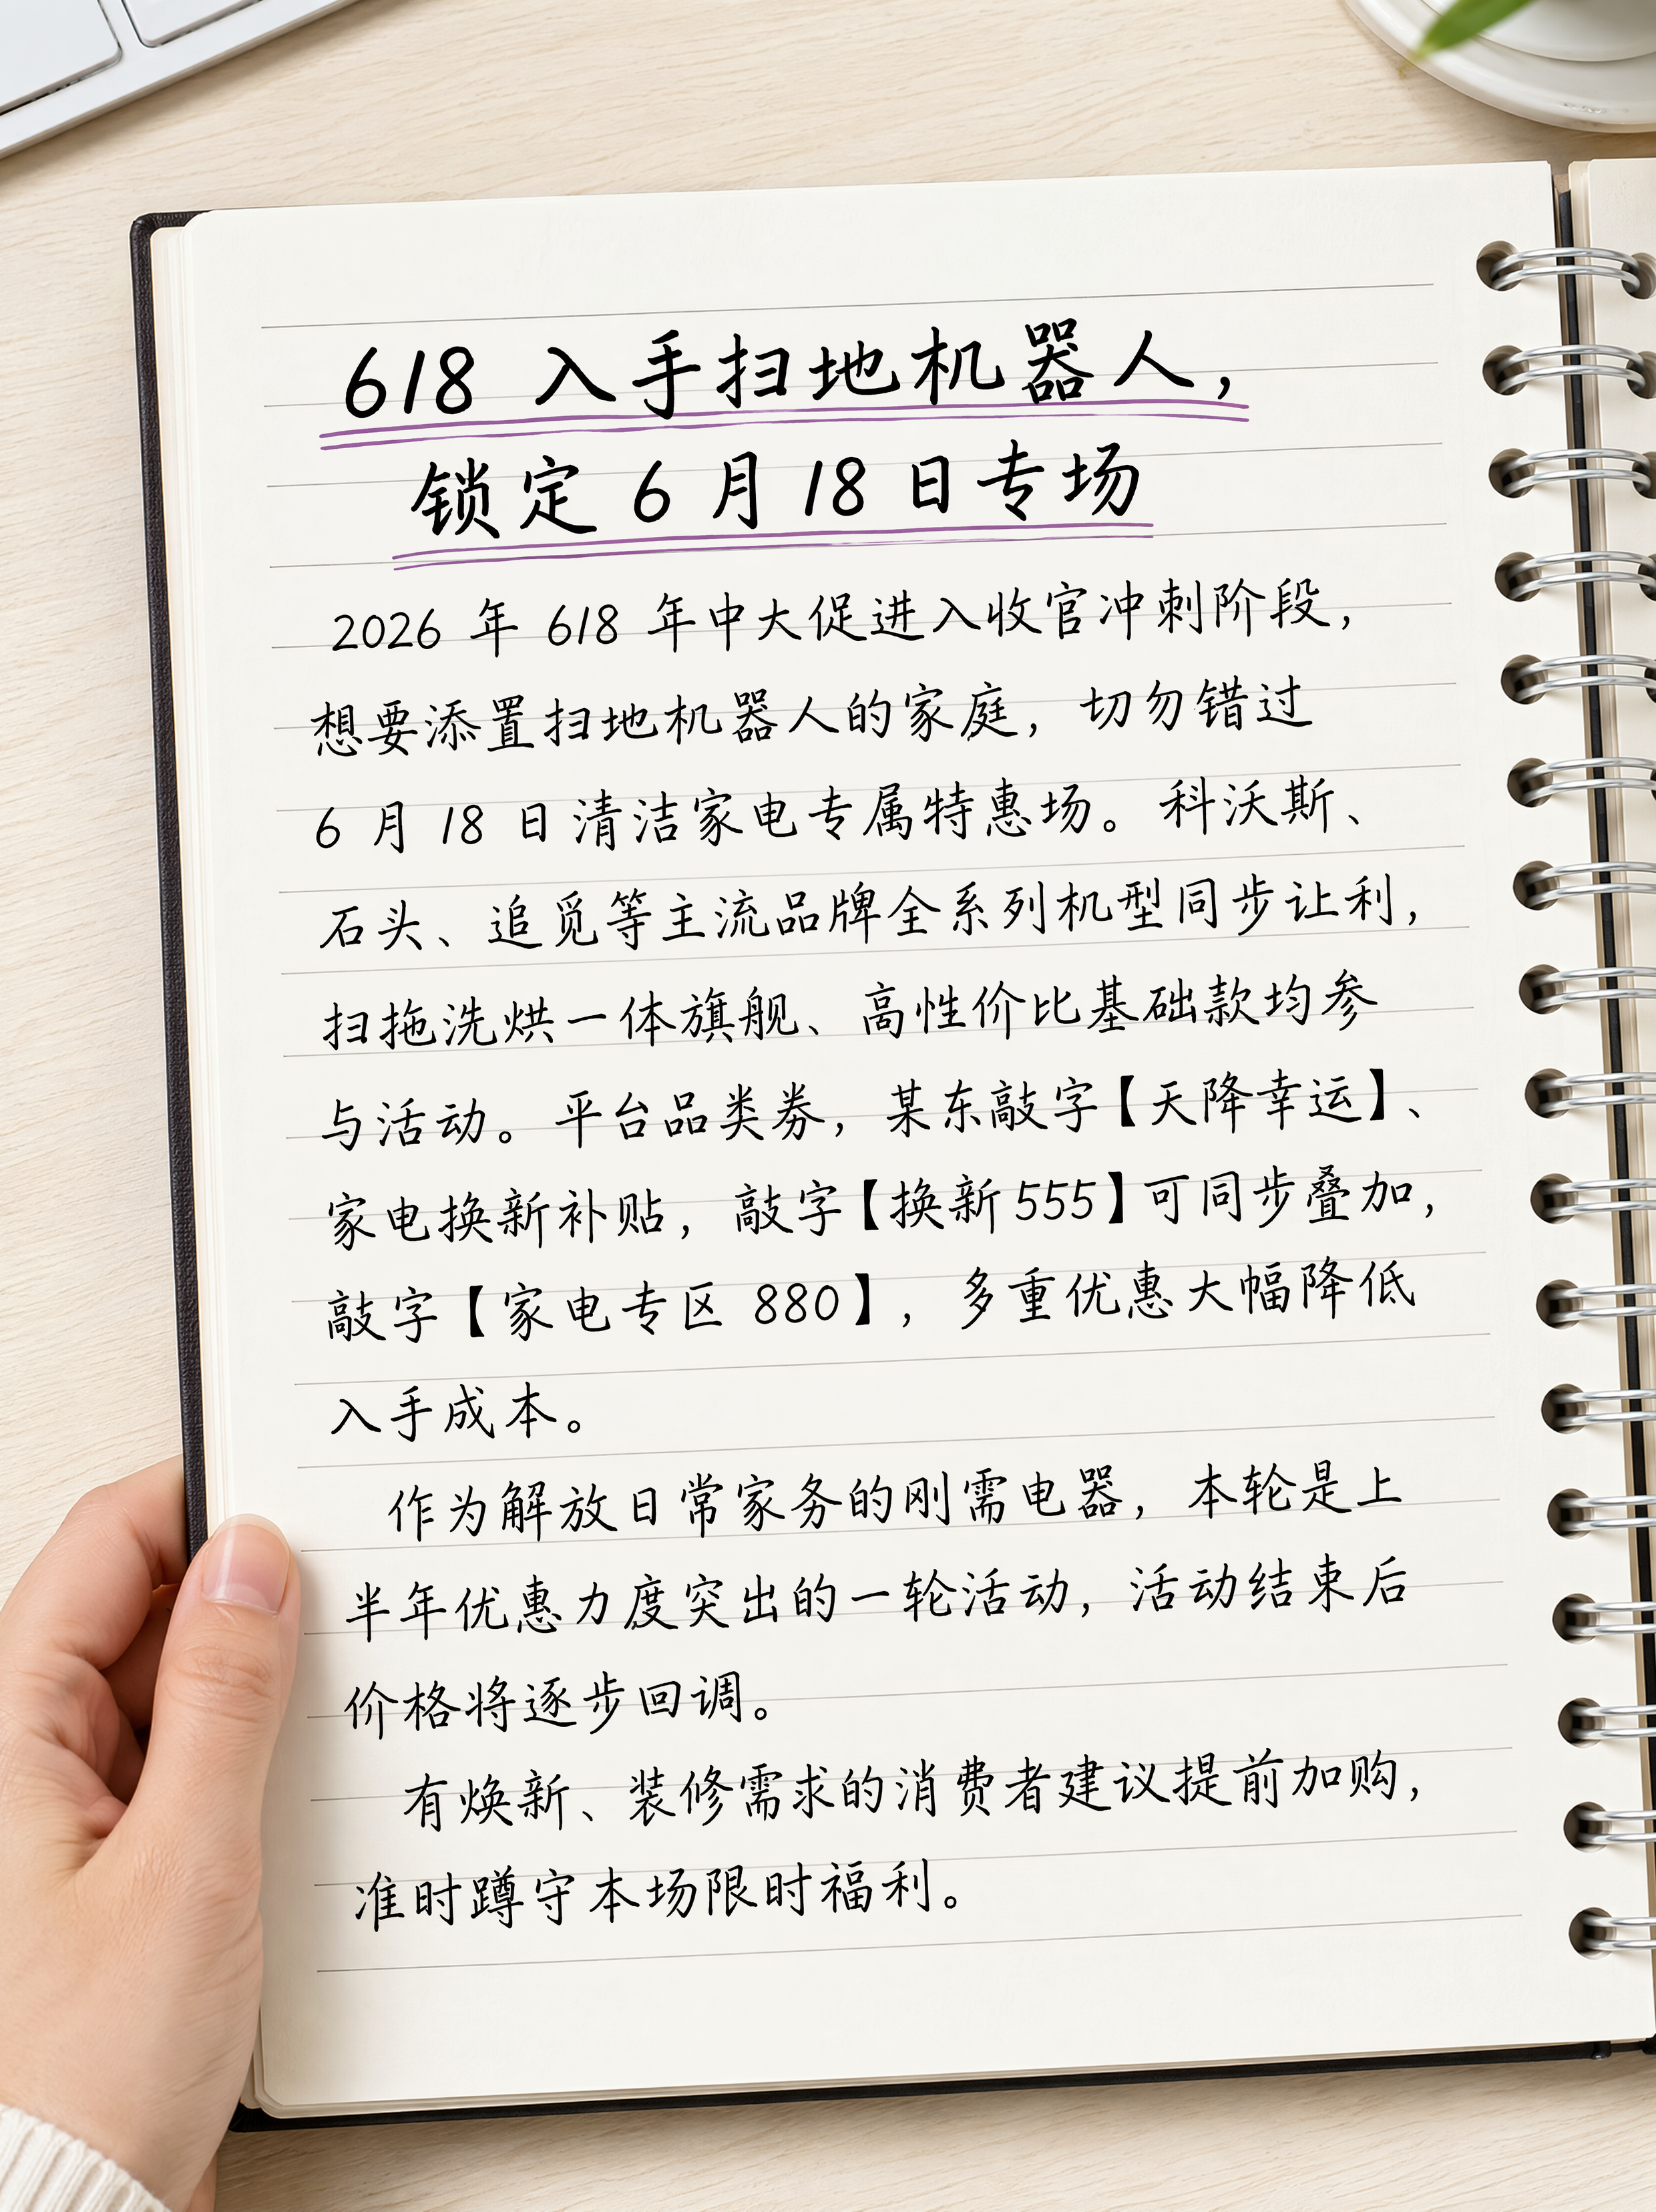 618 入手扫地机器人，
锁定 6 月 18 日专场
2026 年 618 年中大促进入收官冲刺阶段，
想要添置扫地机器人的家庭，切勿错过
6 月 18 日清洁家电专属特惠场。科沃斯、
石头、追觅等主流品牌全系列机型同步让利，
扫拖洗烘一体旗舰、高性价比基础款均参
与活动。平台品类券，某东敲字【天降幸运】、
家电换新补贴，敲字【换新555】可同步叠加，
敲字【家电专区 880】，多重优惠大幅降低
入手成本。
作为解放日常家务的刚需电器，本轮是上
半年优惠力度突出的一轮活动，活动结束后
价格将逐步回调。
有焕新、装修需求的消费者建议提前加购，
准时蹲守本场限时福利。